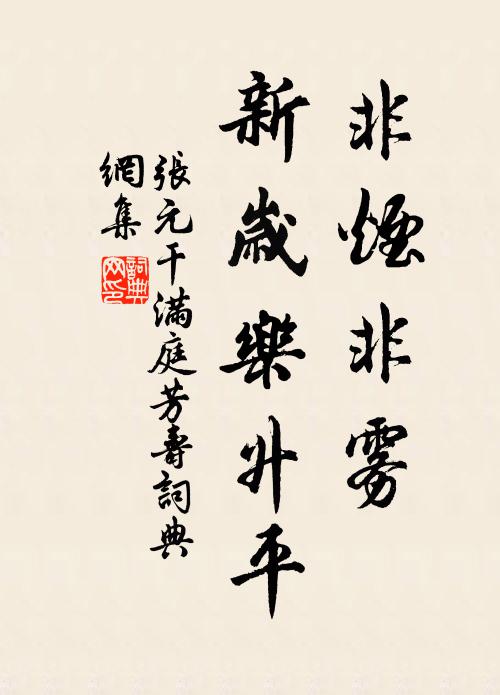 非煙非霧
新歲樂升平
張元干滿庭芳壽詞典
網集
詞典網印